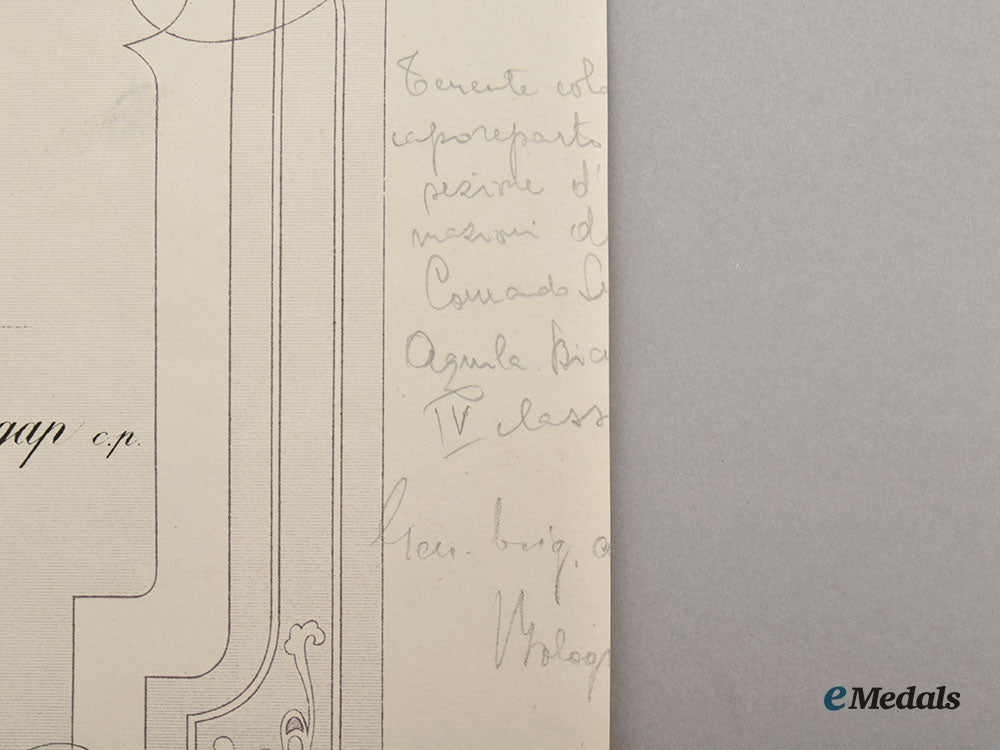 Tenente colo
caporeparto
sezione d'
mazioni d
Comando Su
Aquila Bia
IV classe
Gen. brig. a
Bolog
дар с.р.
eMedals